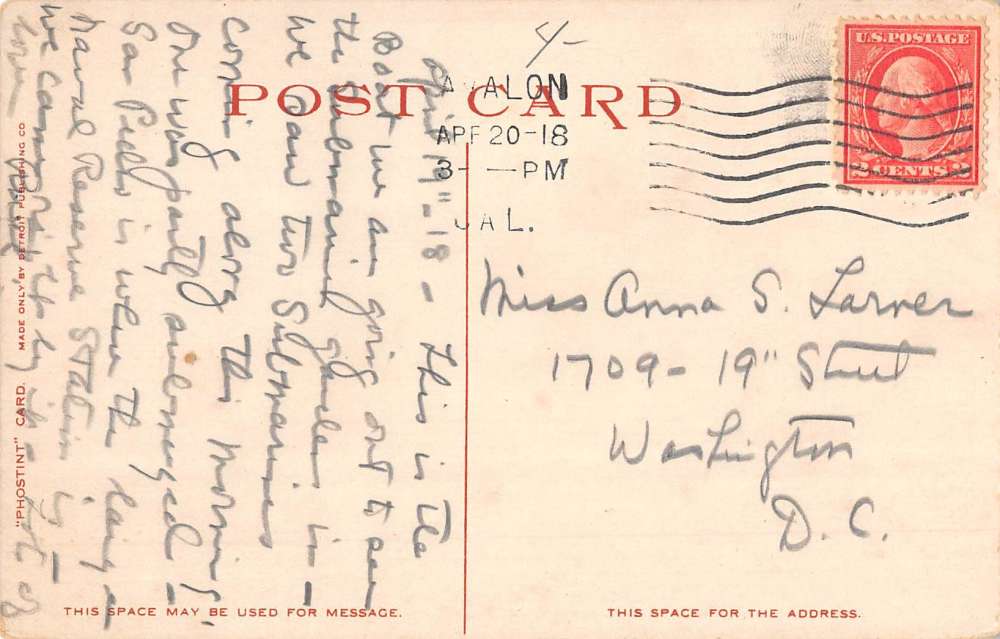 POST CARD
4-
AVALON
APR 20-18
3- —PM
CAL.
U.S. POSTAGE
2 CENTS 2
April 19" - 18 - This is the
Boat we are going out to see
the submarine gardens in -
We saw two Submarines
coming along this morning.
One was partly submerged -
San Pedro is where the large
Naval Reserve Station is -
We came
Miss Anna S. Larner
1709 - 19" Street
Washington
D. C.
"PHOSTINT" CARD. MADE ONLY BY DETROIT PUBLISHING CO
THIS SPACE MAY BE USED FOR MESSAGE.
THIS SPACE FOR THE ADDRESS.